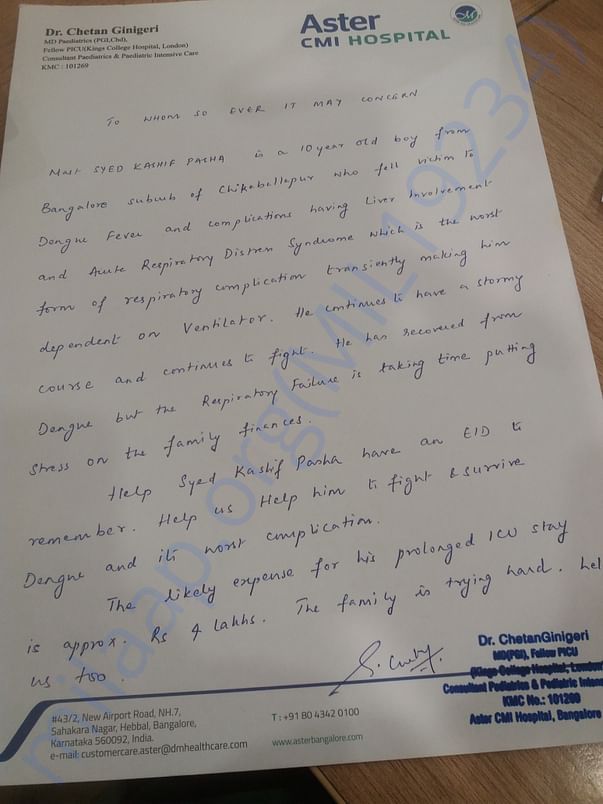 Dr. Chetan Ginigeri
MD Paediatrics (PGI,Chd),
Fellow PICU(Kings College Hospital, London)
Consultant Paediatrics & Paediatric Intensive Care
KMC : 101269
Aster
CMI HOSPITAL
TO WHOM SO EVER IT MAY CONCERN
Mast SYED KASHIF PASHA is a 10 year old boy from
Bangalore suburb of Chikaballapur who fell victim to
Dengue Fever and complications having Liver Involvement
and Acute Respiratory Distress Syndrome which is the worst
form of respiratory complication transiently making him
dependent on Ventilator. He continues to have a stormy
course and continues to fight. He has recovered from
Dengue but the Respiratory Failure is taking time putting
stress on the family finances.
Help Syed Kashif Pasha have an EID to
remember. Help us Help him to fight & survive
Dengue and its worst complication.
The likely expense for his prolonged ICU stay
is approx. Rs 4 lakhs. The family is trying hard. Hel
us too.
Dr. ChetanGinigeri
MD(PGI), Fellow PICU
(Kings College Hospital, London)
Consultant Pediatrics & Pediatric Intens
KMC No.: 101269
Aster CMI Hospital, Bangalore
#43/2, New Airport Road, NH.7,
Sahakara Nagar, Hebbal, Bangalore,
Karnataka 560092, India.
e-mail: customercare.aster@dmhealthcare.com
T : +91 80 4342 0100
www.asterbangalore.com
milaap.org(MIL192344)